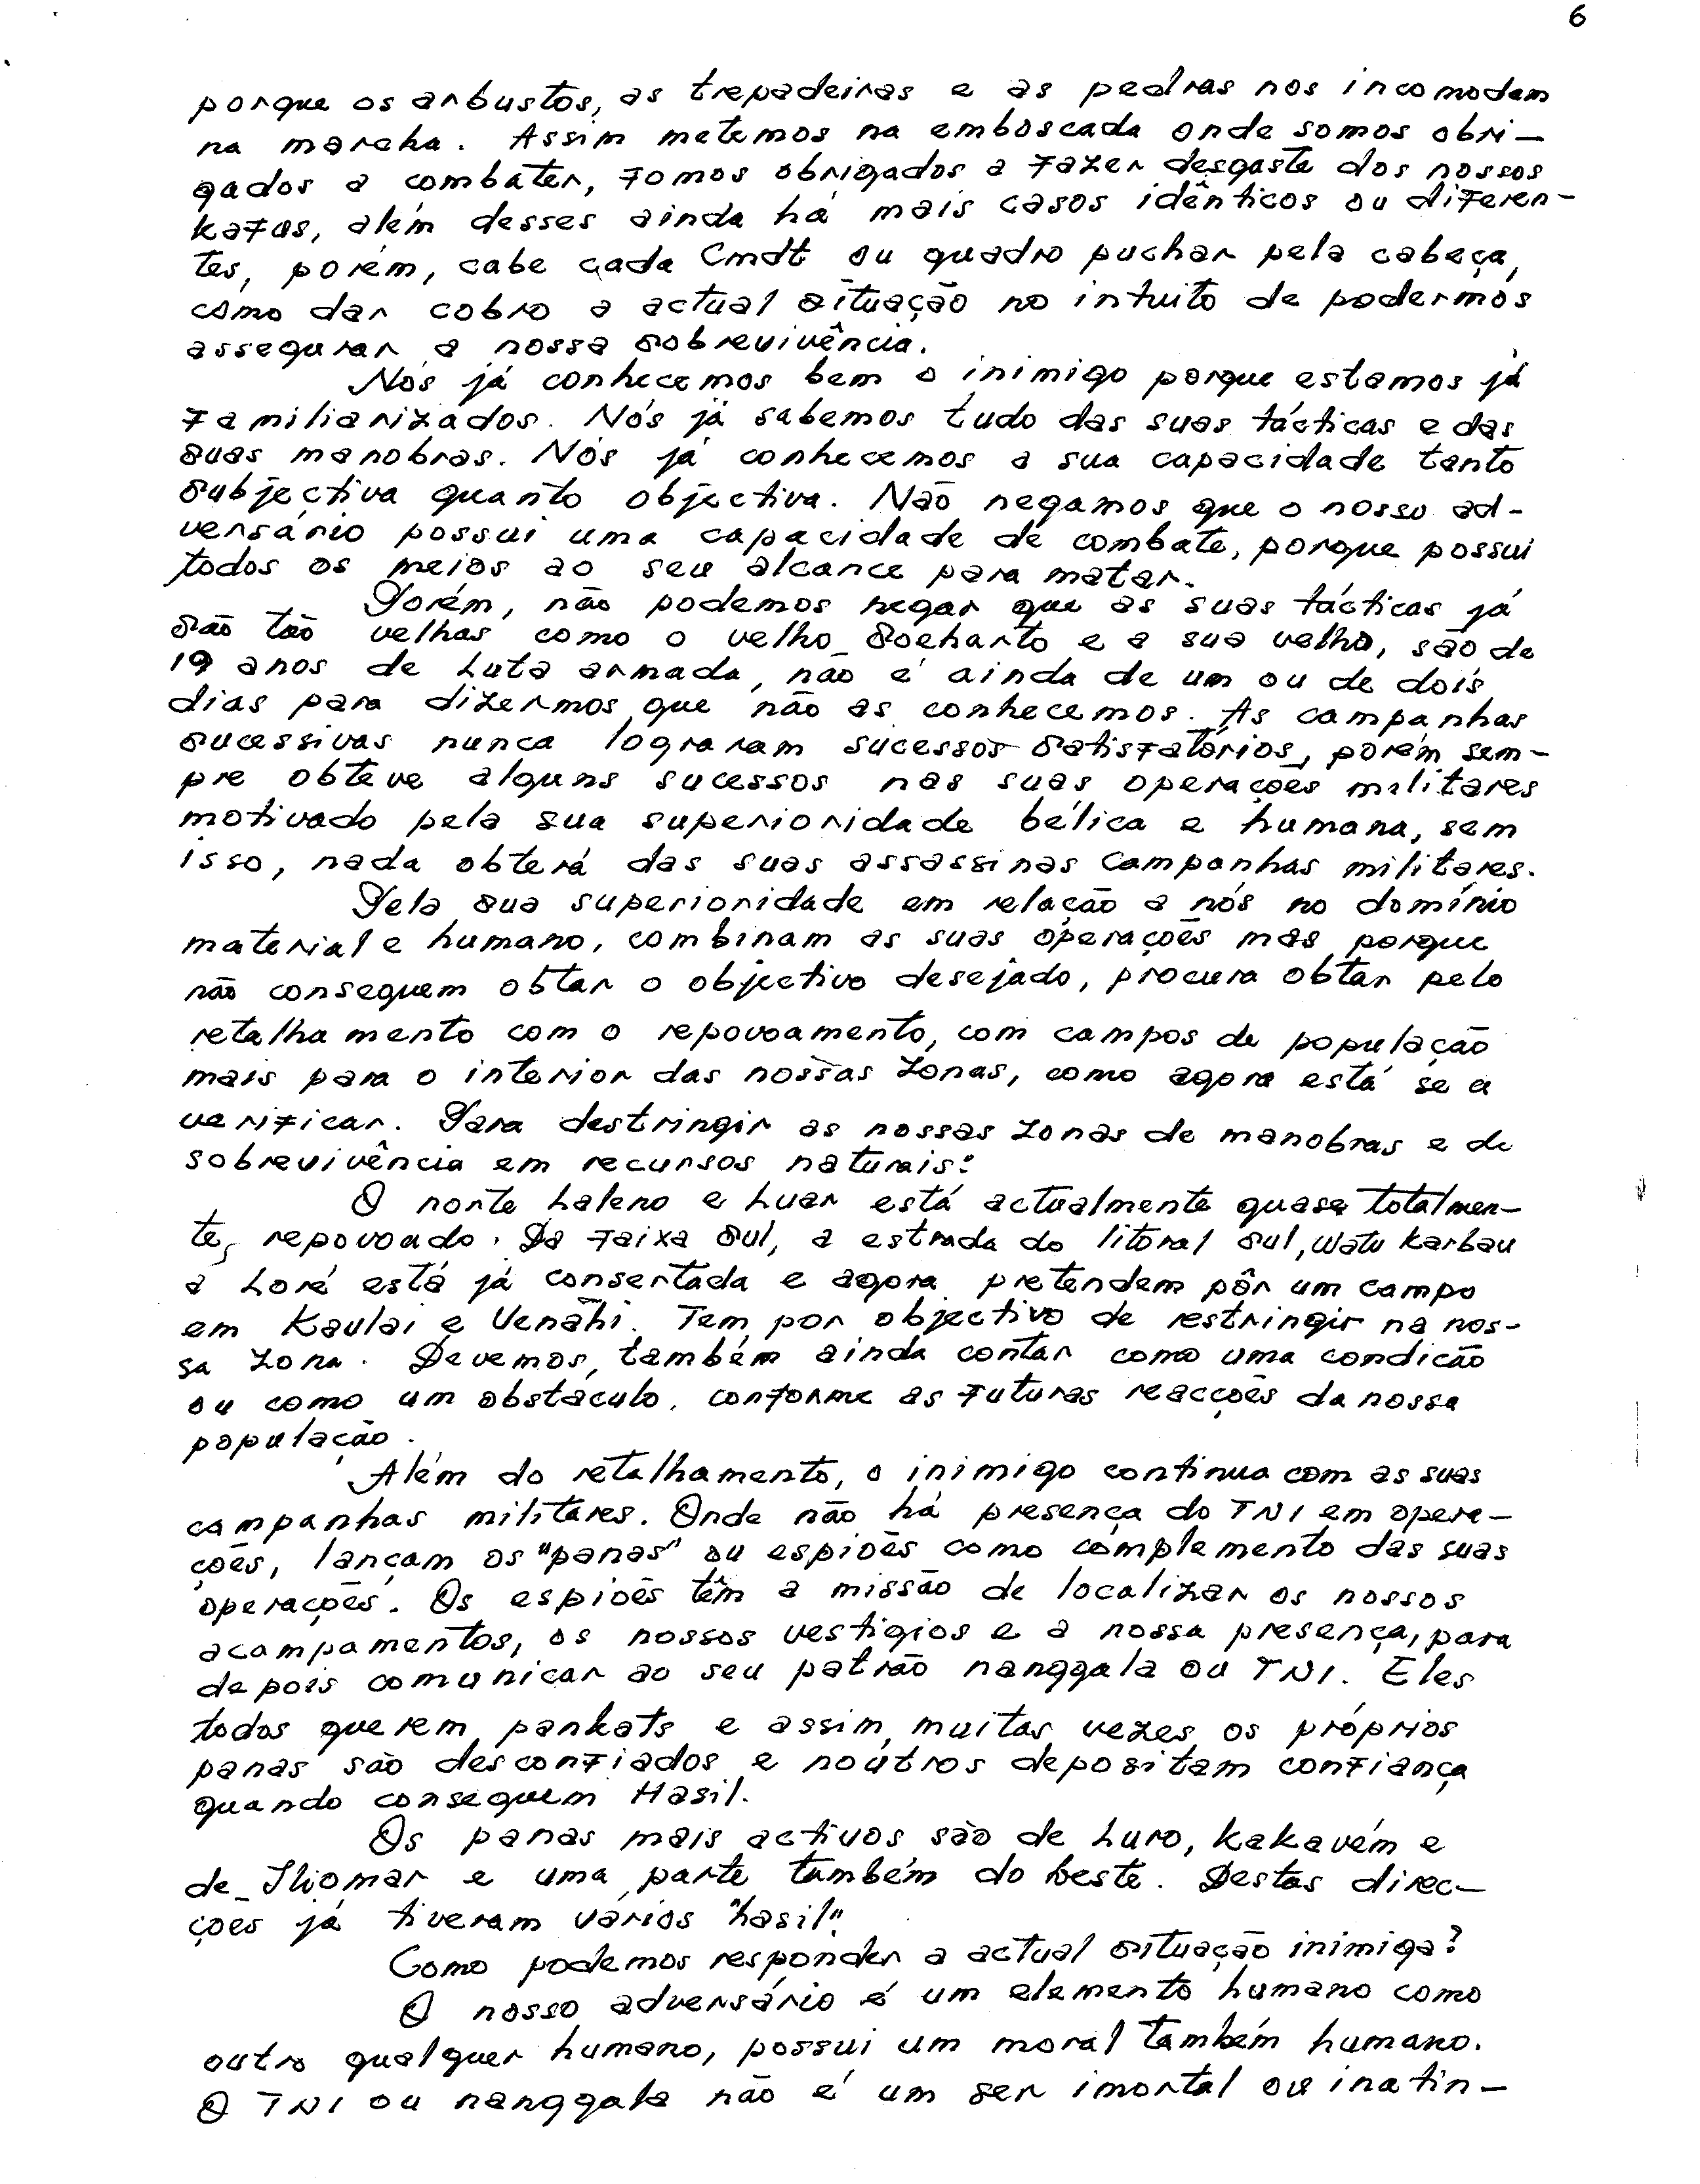 6
porque os arbustos, as trepadeiras e as pedras nos incomodam
na marcha. Assim metemos na emboscada onde somos obri-
gados a combater, fomos obrigados a fazer desgaste dos nossos
kafas, além desses ainda há mais casos idênticos ou diferen-
tes, porém, cabe cada Cmdt ou quadro puchar pela cabeça,
como dar cobro a actual situação no intuito de podermos
assegurar a nossa sobrevivência.
Nós já conhecemos bem o inimigo porque estamos já
familiarizados. Nós já sabemos tudo das suas tácticas e das
suas manobras. Nós já conhecemos a sua capacidade tanto
subjectiva quanto objectiva. Não negamos que o nosso ad-
versário possui uma capacidade de combate, porque possui
todos os meios ao seu alcance para matar.
Porém, não podemos negar que as suas tácticas já
são tão velhas como o velho Soeharto e a sua velha, são de
19 anos de Luta armada, não é ainda de um ou de dois
dias para dizermos que não as conhecemos. As campanhas
sucessivas nunca lograram sucessos satisfatórios, porém sem-
pre obteve alguns sucessos nas suas operações militares
motivado pela sua superioridade bélica e humana, sem
isso, nada obterá das suas assassinas campanhas militares.
Pela sua superioridade em relação a nós no domínio
material e humano, combinam as suas operações mas porque
não conseguem obtar o objectivo desejado, procura obtar pelo
retalhamento com o repovoamento, com campos de população
mais para o interior das nossas zonas, como agora está se a
verificar. Para destringir as nossas zonas de manobras e de
sobrevivência em recursos naturais:
O norte Laleno e Luar está actualmente quase totalmen-
te, repovoado. Da faixa sul, a estrada do litoral sul, Watu karbau
a Loré está já consertada e agora pretendem pôr um campo
em Kaulai e Venãhi. Tem por objectivo de restringir na nos-
sa zona. Devemos também ainda contar como uma condição
ou como um obstáculo, conforme as futuras reacções da nossa
população.
Além do retalhamento, o inimigo continua com as suas
campanhas militares. Onde não há presença do TNI em opera-
ções, lançam os "panas" ou espiões como complemento das suas
operações. Os espiões têm a missão de localizar os nossos
acampamentos, os nossos vestigios e a nossa presença, para
depois comunicar ao seu patrão nanggala ou TNI. Eles
todos querem pankats e assim, muitas vezes os próprios
panas são desconfiados e noutros depositam confiança
quando conseguem Hasil.
Os panas mais activos são de Luro, kakavém e
de Iliomar e uma parte também do beste. Destas direc-
ções já tiveram vários "hasil".
Como podemos responder a actual situação inimiga?
O nosso adversário é um elemento humano como
outro qualquer humano, possui um moral também humano.
O TNI ou nanggala não é um ser imortal ou inatin-